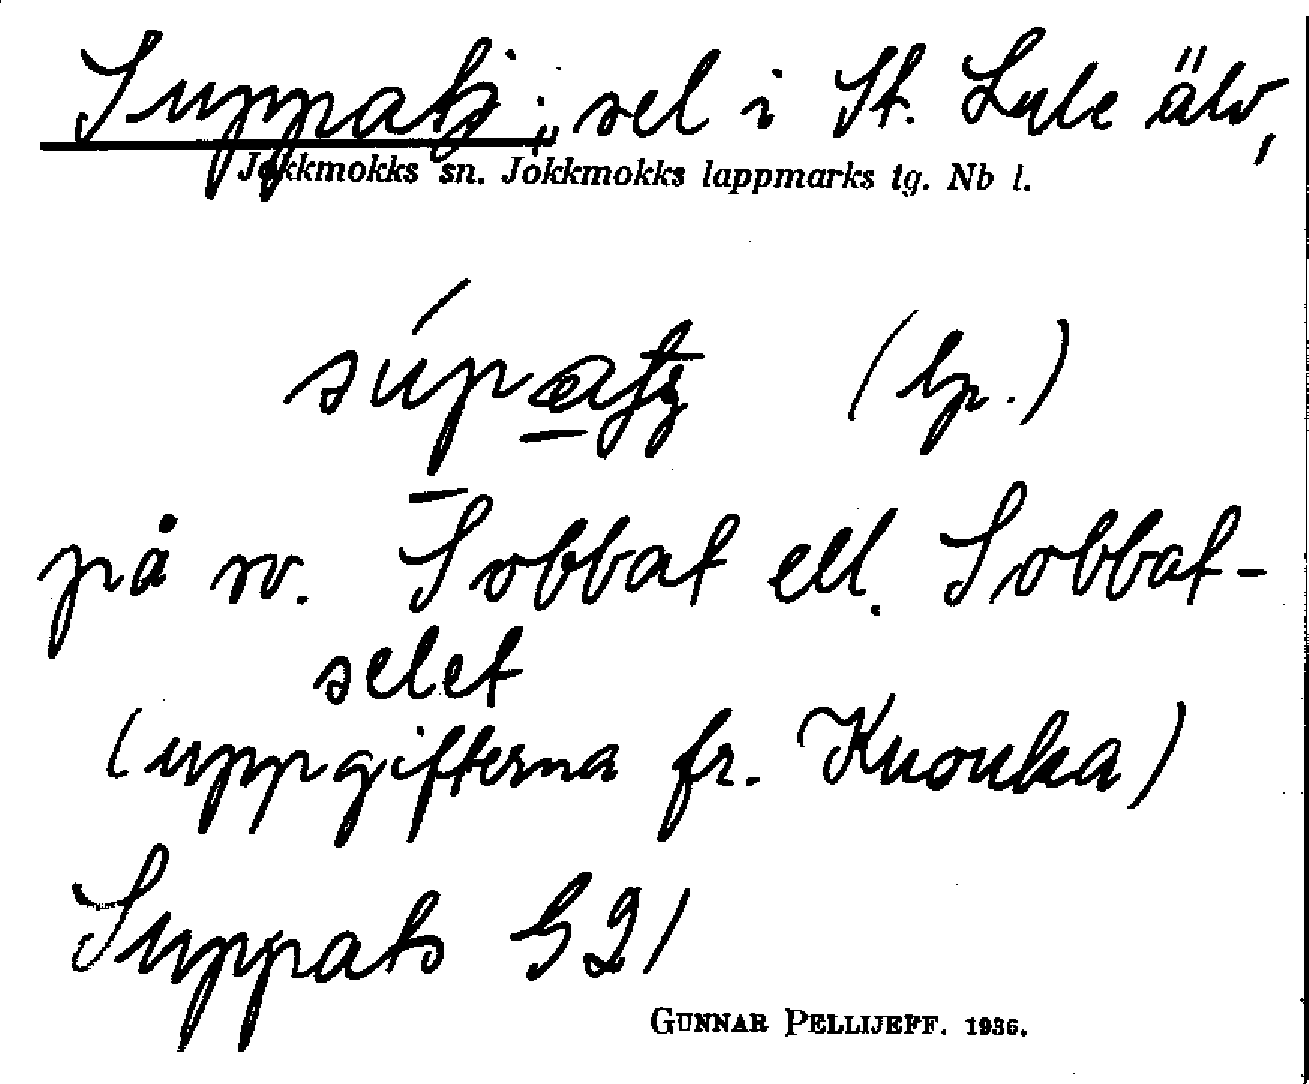 Suppatj, sel i St. Lule älv,
Jokkmokks sn. Jokkmokks lappmarks tg. Nb l.
(lp.)
på sv. Sobbat ell. Sobbat-
selet
(uppgifterna fr. Knouka)
Suppats G21
GUNNAR PELLIJEFF. 1936.